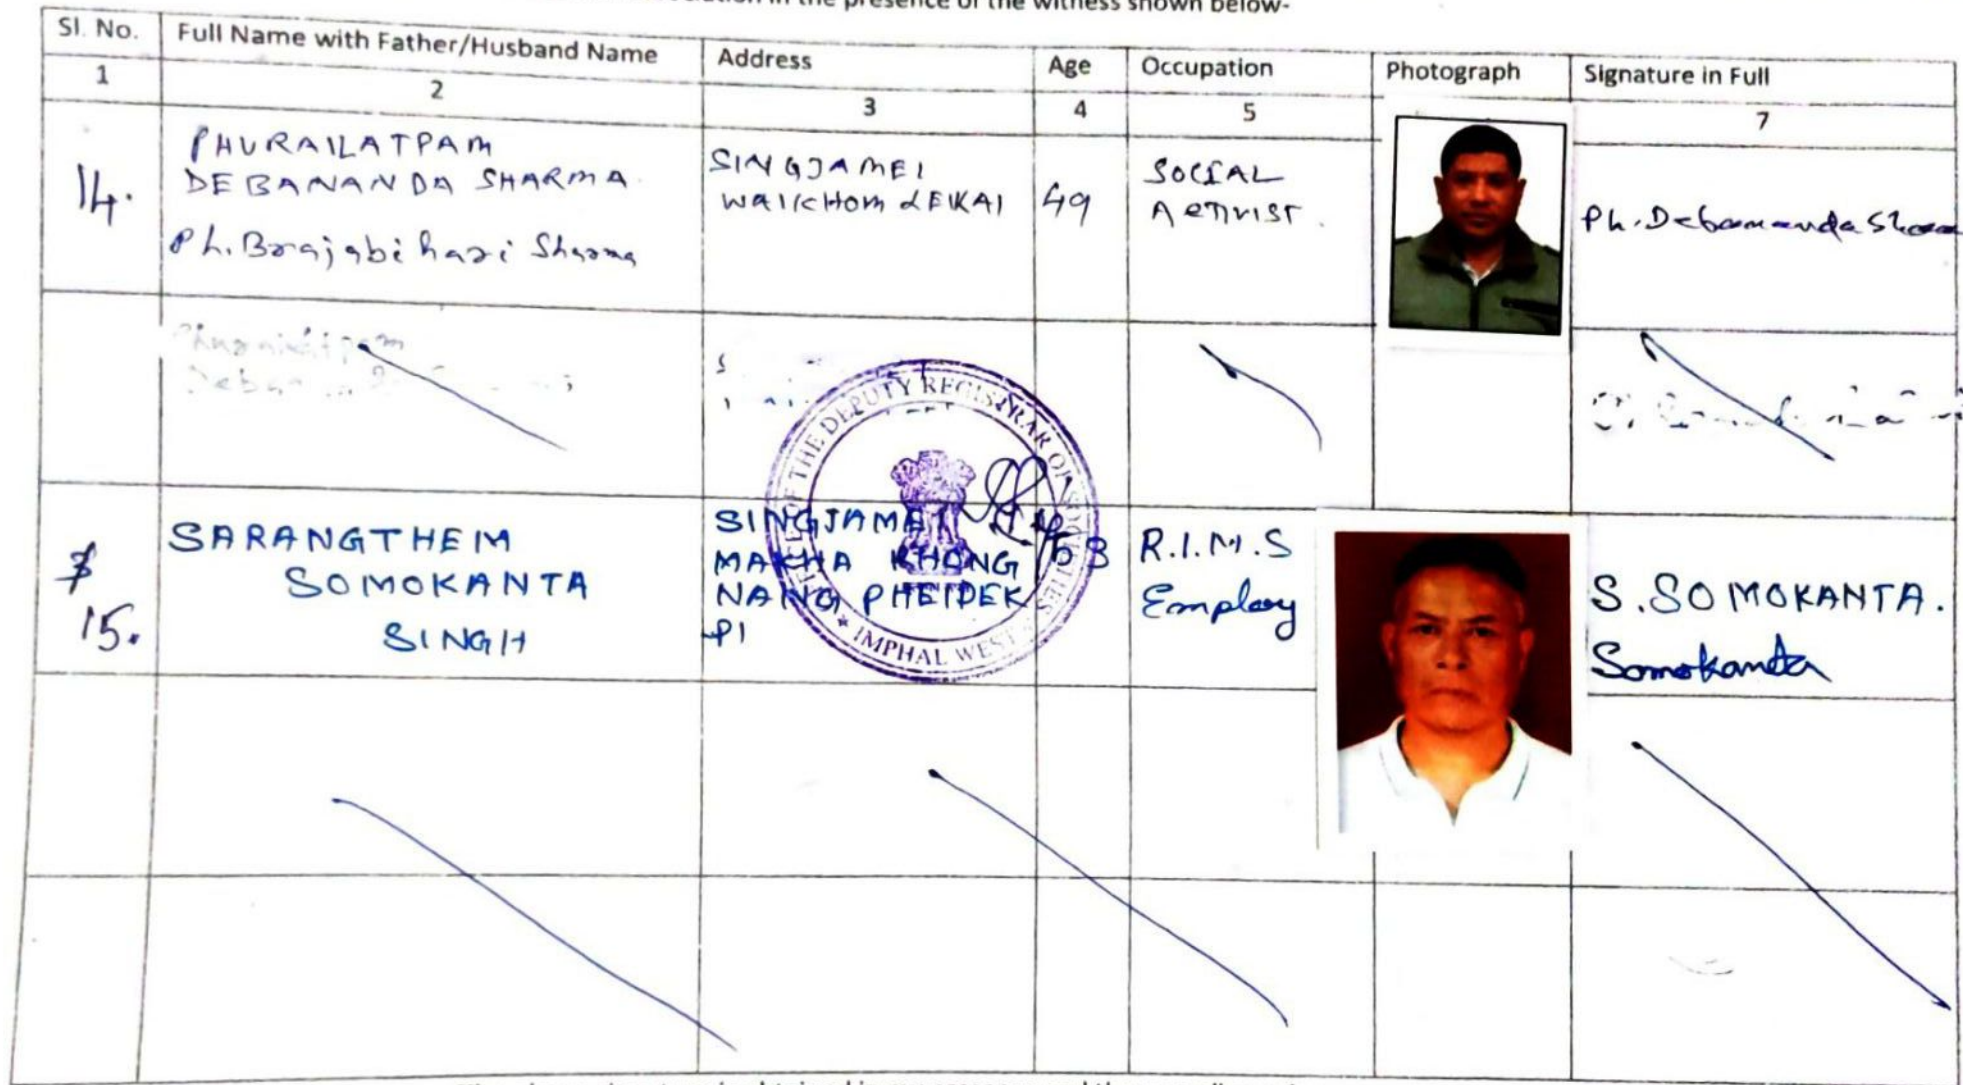 in the presence of the witness shown below-
Sl. No. Full Name with Father/Husband Name Address Age Occupation Photograph Signature in Full
1 2 3 4 5 7
14. PHURAILATPAM DEBANANDA SHARMA Ph. Brajabihari Sharma
SINGJAMEI
WAIKHOM LEIKAI
49
SOCIAL
ACTIVIST.
Ph. Debananda Sharma
Phurailatpam
15. SARANGTHEM
SOMOKANTA
SINGH
SINGJAMEI
MAKHA KHONG
NANG PHEIDEK
PI
63
R.I.M.S
Employ
S. SOMOKANTA.
Somokanta
OF THE DEPUTY REGISTRAR OF SOCIETIES
★ IMPHAL WEST